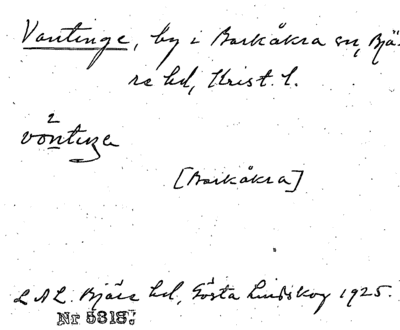 Vantinge, by i Barkåkra sn, Bjä-
re hd, Krist. l.
2
vöntıŋa
[Barkåkra]
L A L. Bjäre hd, Gösta Lindskog 1925.
Nr 5318: